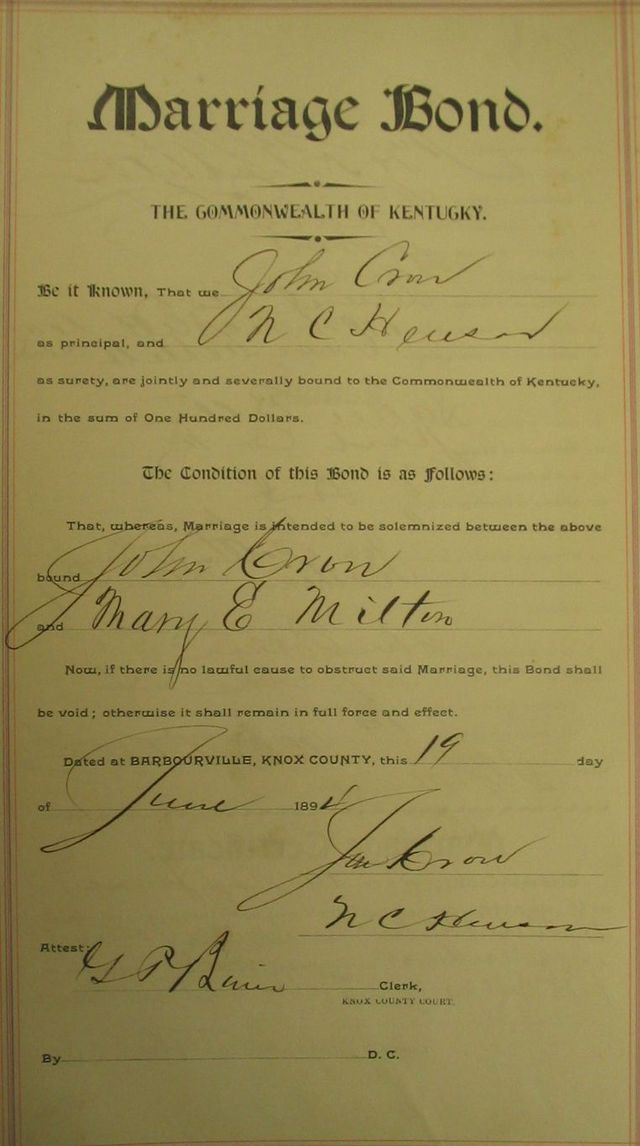 Marriage Bond.
THE COMMONWEALTH OF KENTUCKY.
Be it Known, That we John Crow
as principal, and N C Henson
as surety, are jointly and severally bound to the Commonwealth of Kentucky,
in the sum of One Hundred Dollars.
The Condition of this Bond is as Follows:
That, whereas, Marriage is intended to be solemnized between the above
bound John Crow
and Mary E Milton
Now, if there is no lawful cause to obstruct said Marriage, this Bond shall
be void; otherwise it shall remain in full force and effect.
Dated at BARBOURVILLE, KNOX COUNTY, this 19 day
of June 1894
Crow
N C Henson
Attest:
G P Clerk,
KNOX COUNTY COURT.
By D. C.